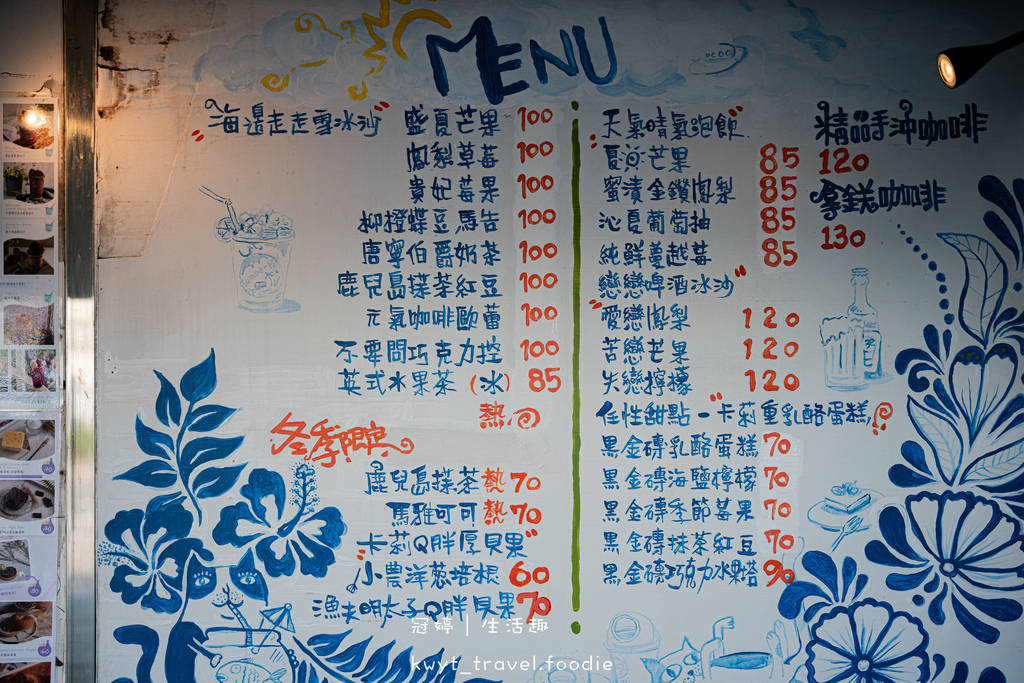 MENU
"海邊走走雪冰沙" 盛夏芒果 100
鳳梨草莓 100
貴妃莓果 100
柳橙蝶豆馬告 100
唐寧伯爵奶茶 100
鹿兒島抹茶紅豆 100
元氣咖啡歐蕾 100
不要問巧克力控 100
英式水果茶 (冰) 85
熱
冬季限定
鹿兒島抹茶熱 70
馬雅可可熱 70
"卡莉Q胖厚貝果"
小農洋蔥培根 60
漁夫明太子Q胖貝果 70
"天氣晴氣泡飲"
夏浜芒果 85
蜜漬金鑽鳳梨 85
沁夏葡萄柚 85
純鮮蔓越莓 85
戀戀啤酒冰沙"
"愛戀鳳梨 120
苦戀芒果 120
失戀檸檬 120
任性甜點-"卡莉重乳酪蛋糕
黑金磚乳酪蛋糕 70
黑金磚海鹽檸檬 70
黑金磚季節莓果 70
黑金磚抹茶紅豆 70
黑金磚巧克力水果塔 90
精品手沖咖啡
120
拿鐵咖啡
130
冠婷 | 生活趣
kwyt_travel.foodie